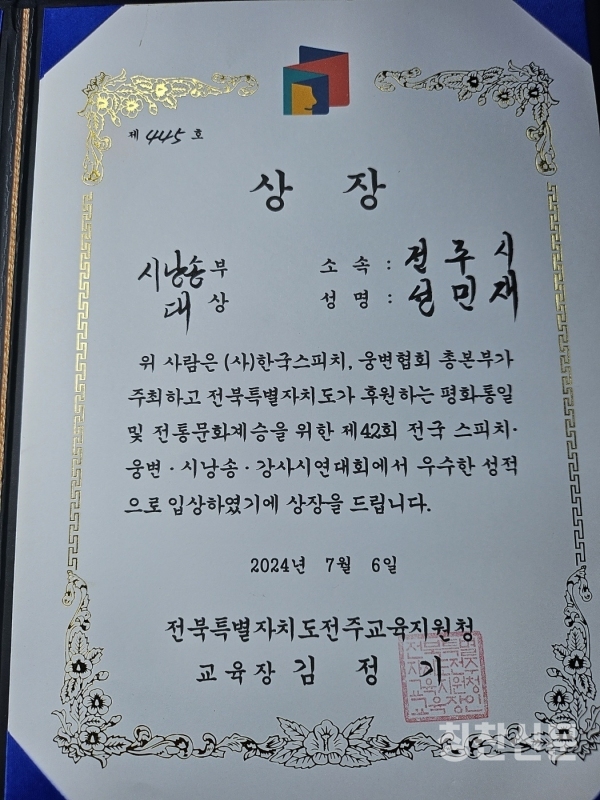 제 445 호
상 장
시낭송부 소 속 : 전 주 시
대 상 성 명 : 선 민 재
위 사람은 (사)한국스피치, 웅변협회 총본부가
주최하고 전북특별자치도가 후원하는 평화통일
및 전통문화계승을 위한 제42회 전국 스피치·
웅변·시낭송·강사시연대회에서 우수한 성적
으로 입상하였기에 상장을 드립니다.
2024년 7월 6일
전북특별자치도전주교육지원청
교육장 김 정 기
전북특별
자치도전주
교육지원청
교육장인
칭찬신문